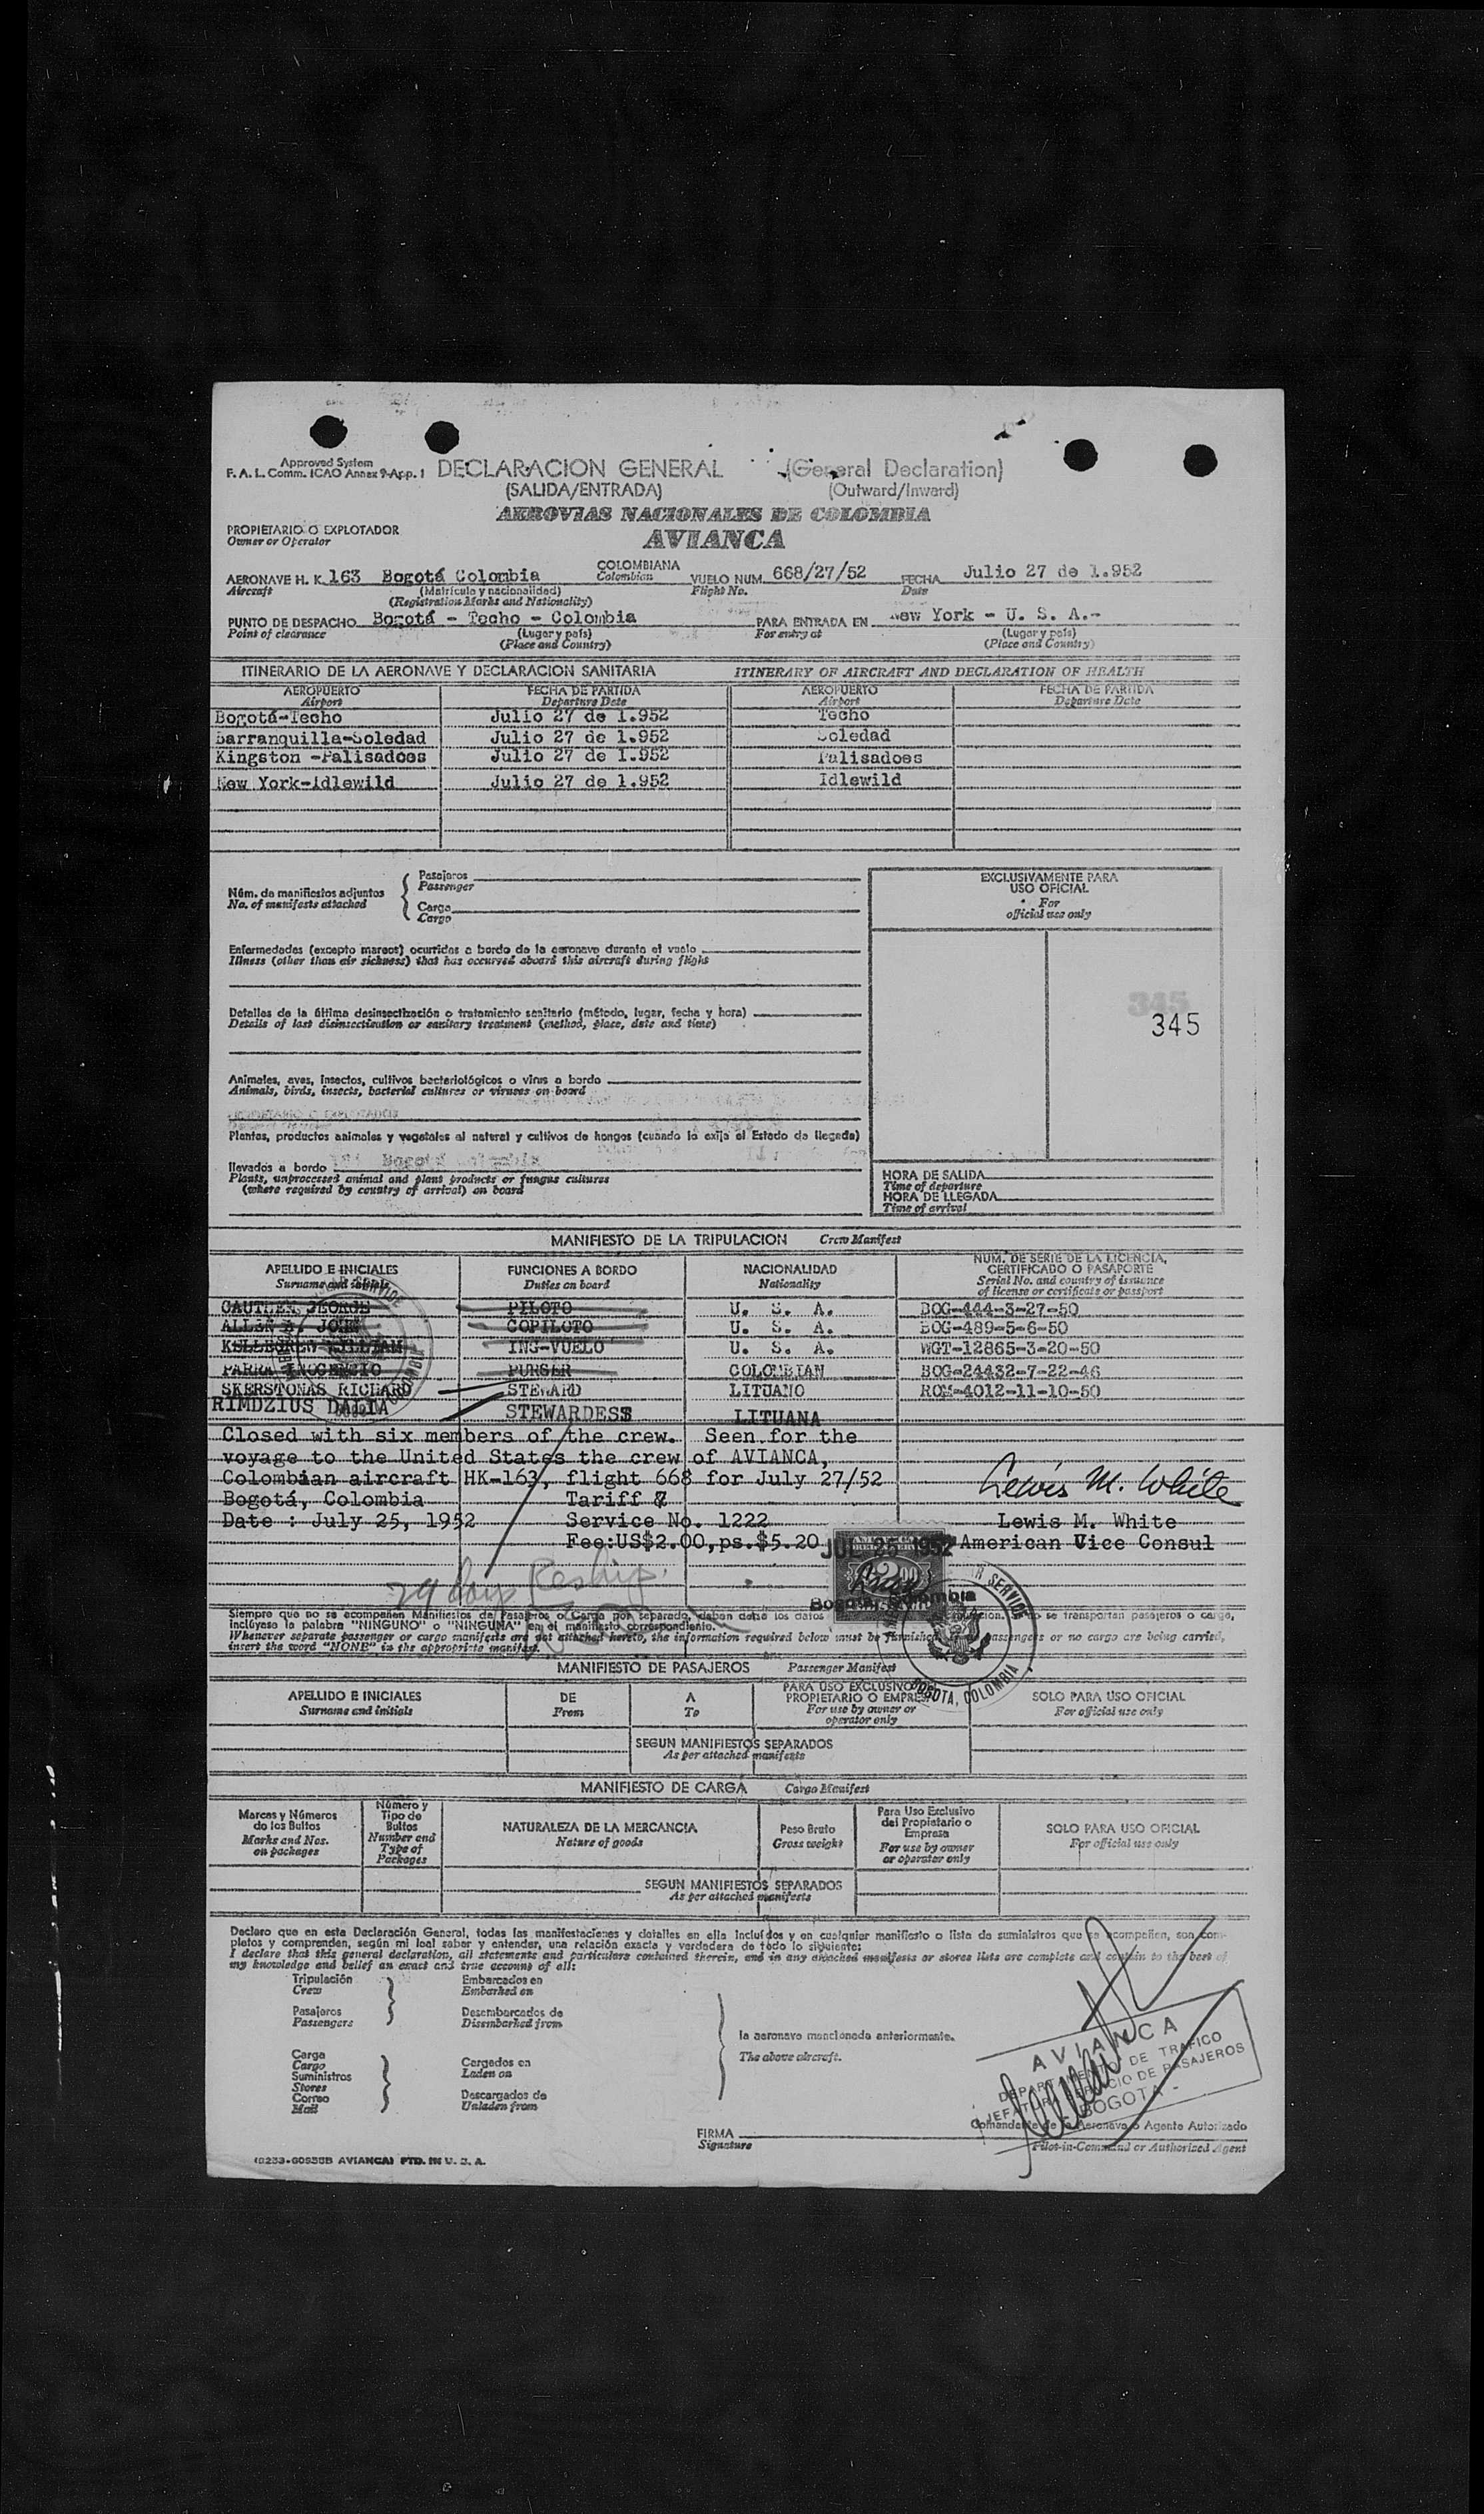 Approved System
F. A. L. Comm. ICAO Annex 9-App. 1
DECLARACION GENERAL (General Declaration)
(SALIDA/ENTRADA) (Outward/Inward)
AEROVIAS NACIONALES DE COLOMBIA
AVIANCA
PROPIETARIO O EXPLOTADOR
Owner or Operator
AERONAVE H. K. 163 Bogotá Colombia COLOMBIANA VUELO NUM. 668/27/52 FECHA Julio 27 de 1.952
Aircraft (Matrícula y nacionalidad) Colombian Flight No. Date
(Registration Marks and Nationality)
PUNTO DE DESPACHO Bogotá - Techo - Colombia PARA ENTRADA EN New York - U. S. A.-
Point of clearance (Lugar y país) For entry at (Lugar y país)
(Place and Country) (Place and Country)
ITINERARIO DE LA AERONAVE Y DECLARACION SANITARIA ITINERARY OF AIRCRAFT AND DECLARATION OF HEALTH
AEROPUERTO FECHA DE PARTIDA AEROPUERTO FECHA DE PARTIDA
Airport Departure Date Airport Departure Date
Bogotá-Techo Julio 27 de 1.952 Techo
Barranquilla-Soledad Julio 27 de 1.952 Soledad
Kingston -Palisadoes Julio 27 de 1.952 Palisadoes
New York-Idlewild Julio 27 de 1.952 Idlewild
Núm. de manifiestos adjuntos
No. of manifests attached
Pasajeros
Passenger
Carga
Cargo
EXCLUSIVAMENTE PARA
USO OFICIAL
For
official use only
Enfermedades (excepto mareos) ocurridas a bordo de la aeronave durante el vuelo
Illness (other than air sickness) that has occurred aboard this aircraft during flight
Detalles de la última desinsectización o tratamiento sanitario (método, lugar, fecha y hora)
Details of last disinsectization or sanitary treatment (method, place, date and time)
345
345
Animales, aves, insectos, cultivos bacteriológicos o virus a bordo
Animals, birds, insects, bacterial cultures or viruses on board
Plantas, productos animales y vegetales al natural y cultivos de hongos (cuando lo exija el Estado de llegada)
llevados a bordo
Plants, unprocessed animal and plant products or fungus cultures
(where required by country of arrival) on board
HORA DE SALIDA
Time of departure
HORA DE LLEGADA
Time of arrival
MANIFIESTO DE LA TRIPULACION Crew Manifest
APELLIDO E INICIALES FUNCIONES A BORDO NACIONALIDAD NUM. DE SERIE DE LA LICENCIA,
CERTIFICADO O PASAPORTE
Surname and initials Duties on board Nationality Serial No. and country of issuance
of license or certificate or passport
CAUTHEN GEORGE PILOTO U. S. A. BOG-444-3-27-50
ALLEN JOHN COPILOTO U. S. A. BOG-489-5-6-50
KELLEGREN WILLIAM ING-VUELO U. S. A. WGT-12865-3-20-50
PARRA INOCENCIO PURSER COLOMBIAN BOG-24432-7-22-46
SKERSTONAS RICHARD STEWARD LITUANO ROM-4012-11-10-50
RIMDZIUS DALIA STEWARDESS LITUANA
Closed with six members of the crew. Seen for the
voyage to the United States the crew of AVIANCA,
Colombian aircraft HK-163, flight 668 for July 27/52
Bogotá, Colombia Tariff 7
Date : July 25, 1952 Service No. 1222
Fee:US$2.00,ps.$5.20
Lewis M. White
Lewis M. White
American Vice Consul
JUL 25 1952
Bogota, Colombia
BOGOTA, COLOMBIA
29 day Reship.
Siempre que no se acompañen Manifiestos de Pasajeros o Carga por separado, deben darse los datos se transportan pasajeros o carga,
inclúyase la palabra "NINGUNO" o "NINGUNA" en el manifiesto correspondiente.
Whenever separate passenger or cargo manifests are not attached hereto, the information required below must be furnished. passengers or no cargo are being carried,
insert the word "NONE" in the appropriate manifest.
MANIFIESTO DE PASAJEROS Passenger Manifest
APELLIDO E INICIALES DE A PARA USO EXCLUSIVO PROPIETARIO O EMPRESA SOLO PARA USO OFICIAL
Surname and initials From To For use by owner or operator only For official use only
SEGUN MANIFIESTOS SEPARADOS
As per attached manifests
MANIFIESTO DE CARGA Cargo Manifest
Marcas y Números de los Bultos Número y Tipo de Bultos NATURALEZA DE LA MERCANCIA Peso Bruto Para Uso Exclusivo del Propietario o Empresa SOLO PARA USO OFICIAL
Marks and Nos. on packages Number and Type of Packages Nature of goods Gross weight For use by owner or operator only For official use only
SEGUN MANIFIESTOS SEPARADOS
As per attached manifests
Declaro que en esta Declaración General, todas las manifestaciones y detalles en ella incluídos y en cualquier manifiesto o lista de suministros que se acompañen, son com-
pletos y comprenden, según mi leal saber y entender, una relación exacta y verdadera de todo lo siguiente:
I declare that this general declaration, all statements and particulars contained therein, and in any attached manifests or stores lists are complete and contain to the best of
my knowledge and belief an exact and true account of all:
Tripulación Embarcados en
Crew Embarked on
Pasajeros Desembarcados de
Passengers Disembarked from
la aeronave mencionada anteriormente.
The above aircraft.
Carga Cargados en
Cargo Laden on
Suministros
Stores
Correo Descargados de
Mail Unladen from
AVIANCA
DEPARTAMENTO DE TRAFICO
JEFATURA SERVICIO DE PASAJEROS
- BOGOTA -
Comandante de la Aeronave o Agente Autorizado
FIRMA
Signature Pilot-in-Command or Authorized Agent
(0253-60955B AVIANCA) PTD. IN U. S. A.